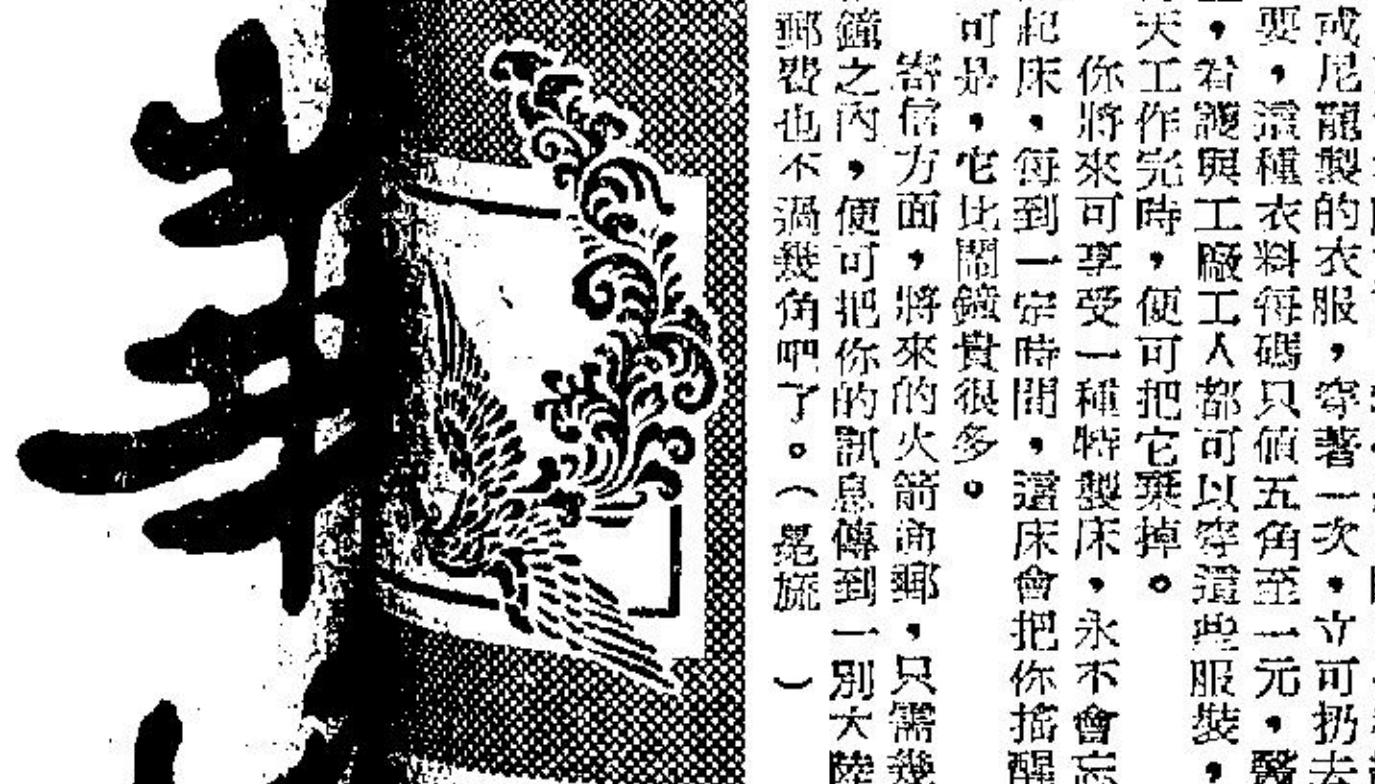 或尼龍製的衣服，穿著一次，立可扔去
要，這種衣料每碼只值五角至一元，醫
，看護與工廠工人都可以穿這些服裝，
天工作完時，便可把它棄掉。
你將來可享受一種特製床，永不會忘
起床，每到一定時間，這床會把你搖醒
可是，它比鬧鐘貴很多。
寄信方面，將來的火箭函郵，只需幾
鐘之內，便可把你的訊息傳到一別大陸
郵費也不過幾角吧了。（旒）
華